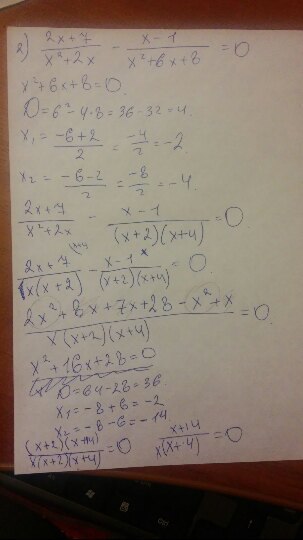 2) (2x+7)/(x²+2x) - (x-1)/(x²+6x+8) = 0
x²+6x+8=0.
D=6²-4·8=36-32=4.
x₁ = (-6+2)/2 = -4/2 = -2
x₂ = (-6-2)/2 = -8/2 = -4.
(2x+7)/(x²+2x) - (x-1)/((x+2)(x+4)) = 0
(2x+7)/(x(x+2)) \x+4 - (x-1)/((x+2)(x+4)) \x = 0.
(2x²+8x+7x+28-x²+x)/(x(x+2)(x+4)) = 0
x²+16x+28=0
D=64-28=36.
x₁=-8+6=-2
x₂=-8-6=-14.
((x+2)(x+14))/(x(x+2)(x+4)) = 0 (x+14)/(x(x+4)) = 0